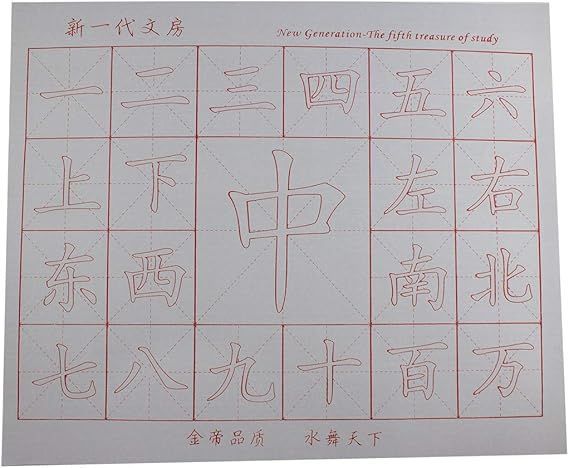 新一代文房
New Generation-The fifth treasure of study
一 二 三 四 五 六
上 下 中 左 右
东 西 南 北
七 八 九 十 百 万
金帝品质 水舞天下